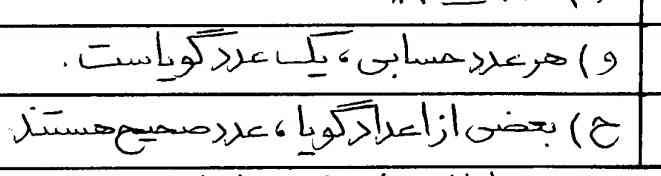 و) هر عدد حسابی، یک عدد گویاست.
ح) بعضی از اعداد گویا، عدد صحیح هستند